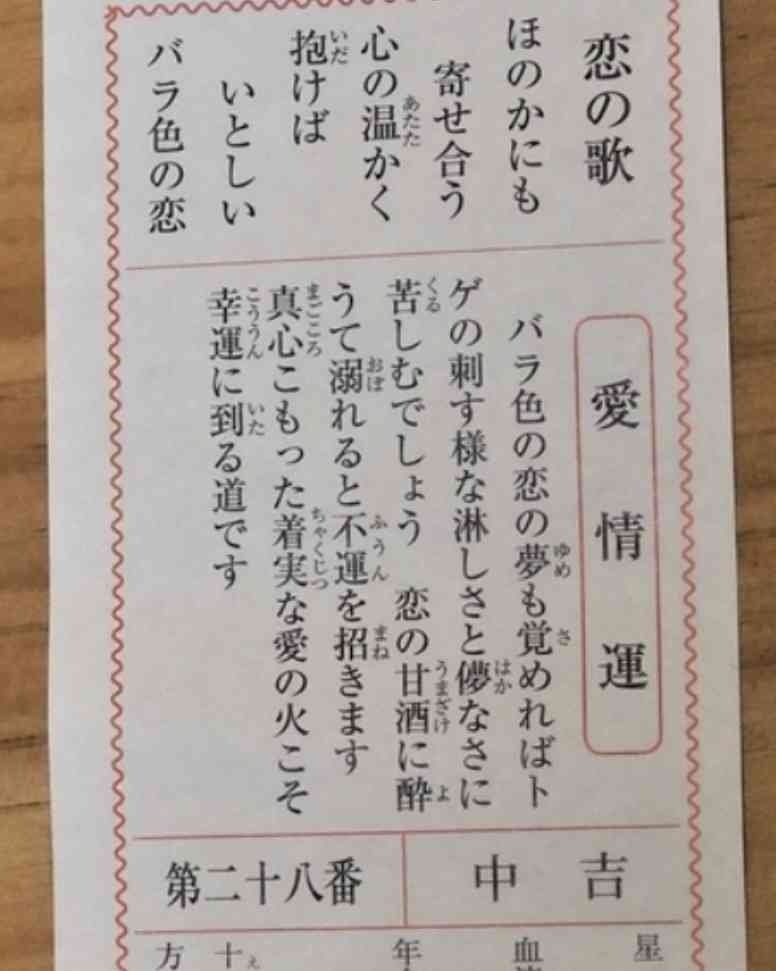 恋の歌
ほのかにも
寄せ合う
心の温かく
抱けば
いとしい
バラ色の恋
愛情運
バラ色の恋の夢も覚めればト
ゲの刺す様な淋しさと儚なさに
苦しむでしょう　恋の甘酒に酔
うて溺れると不運を招きます
真心こもった着実な愛の火こそ
幸運に到る道です
中吉
第二十八番
星
血
年
十
方